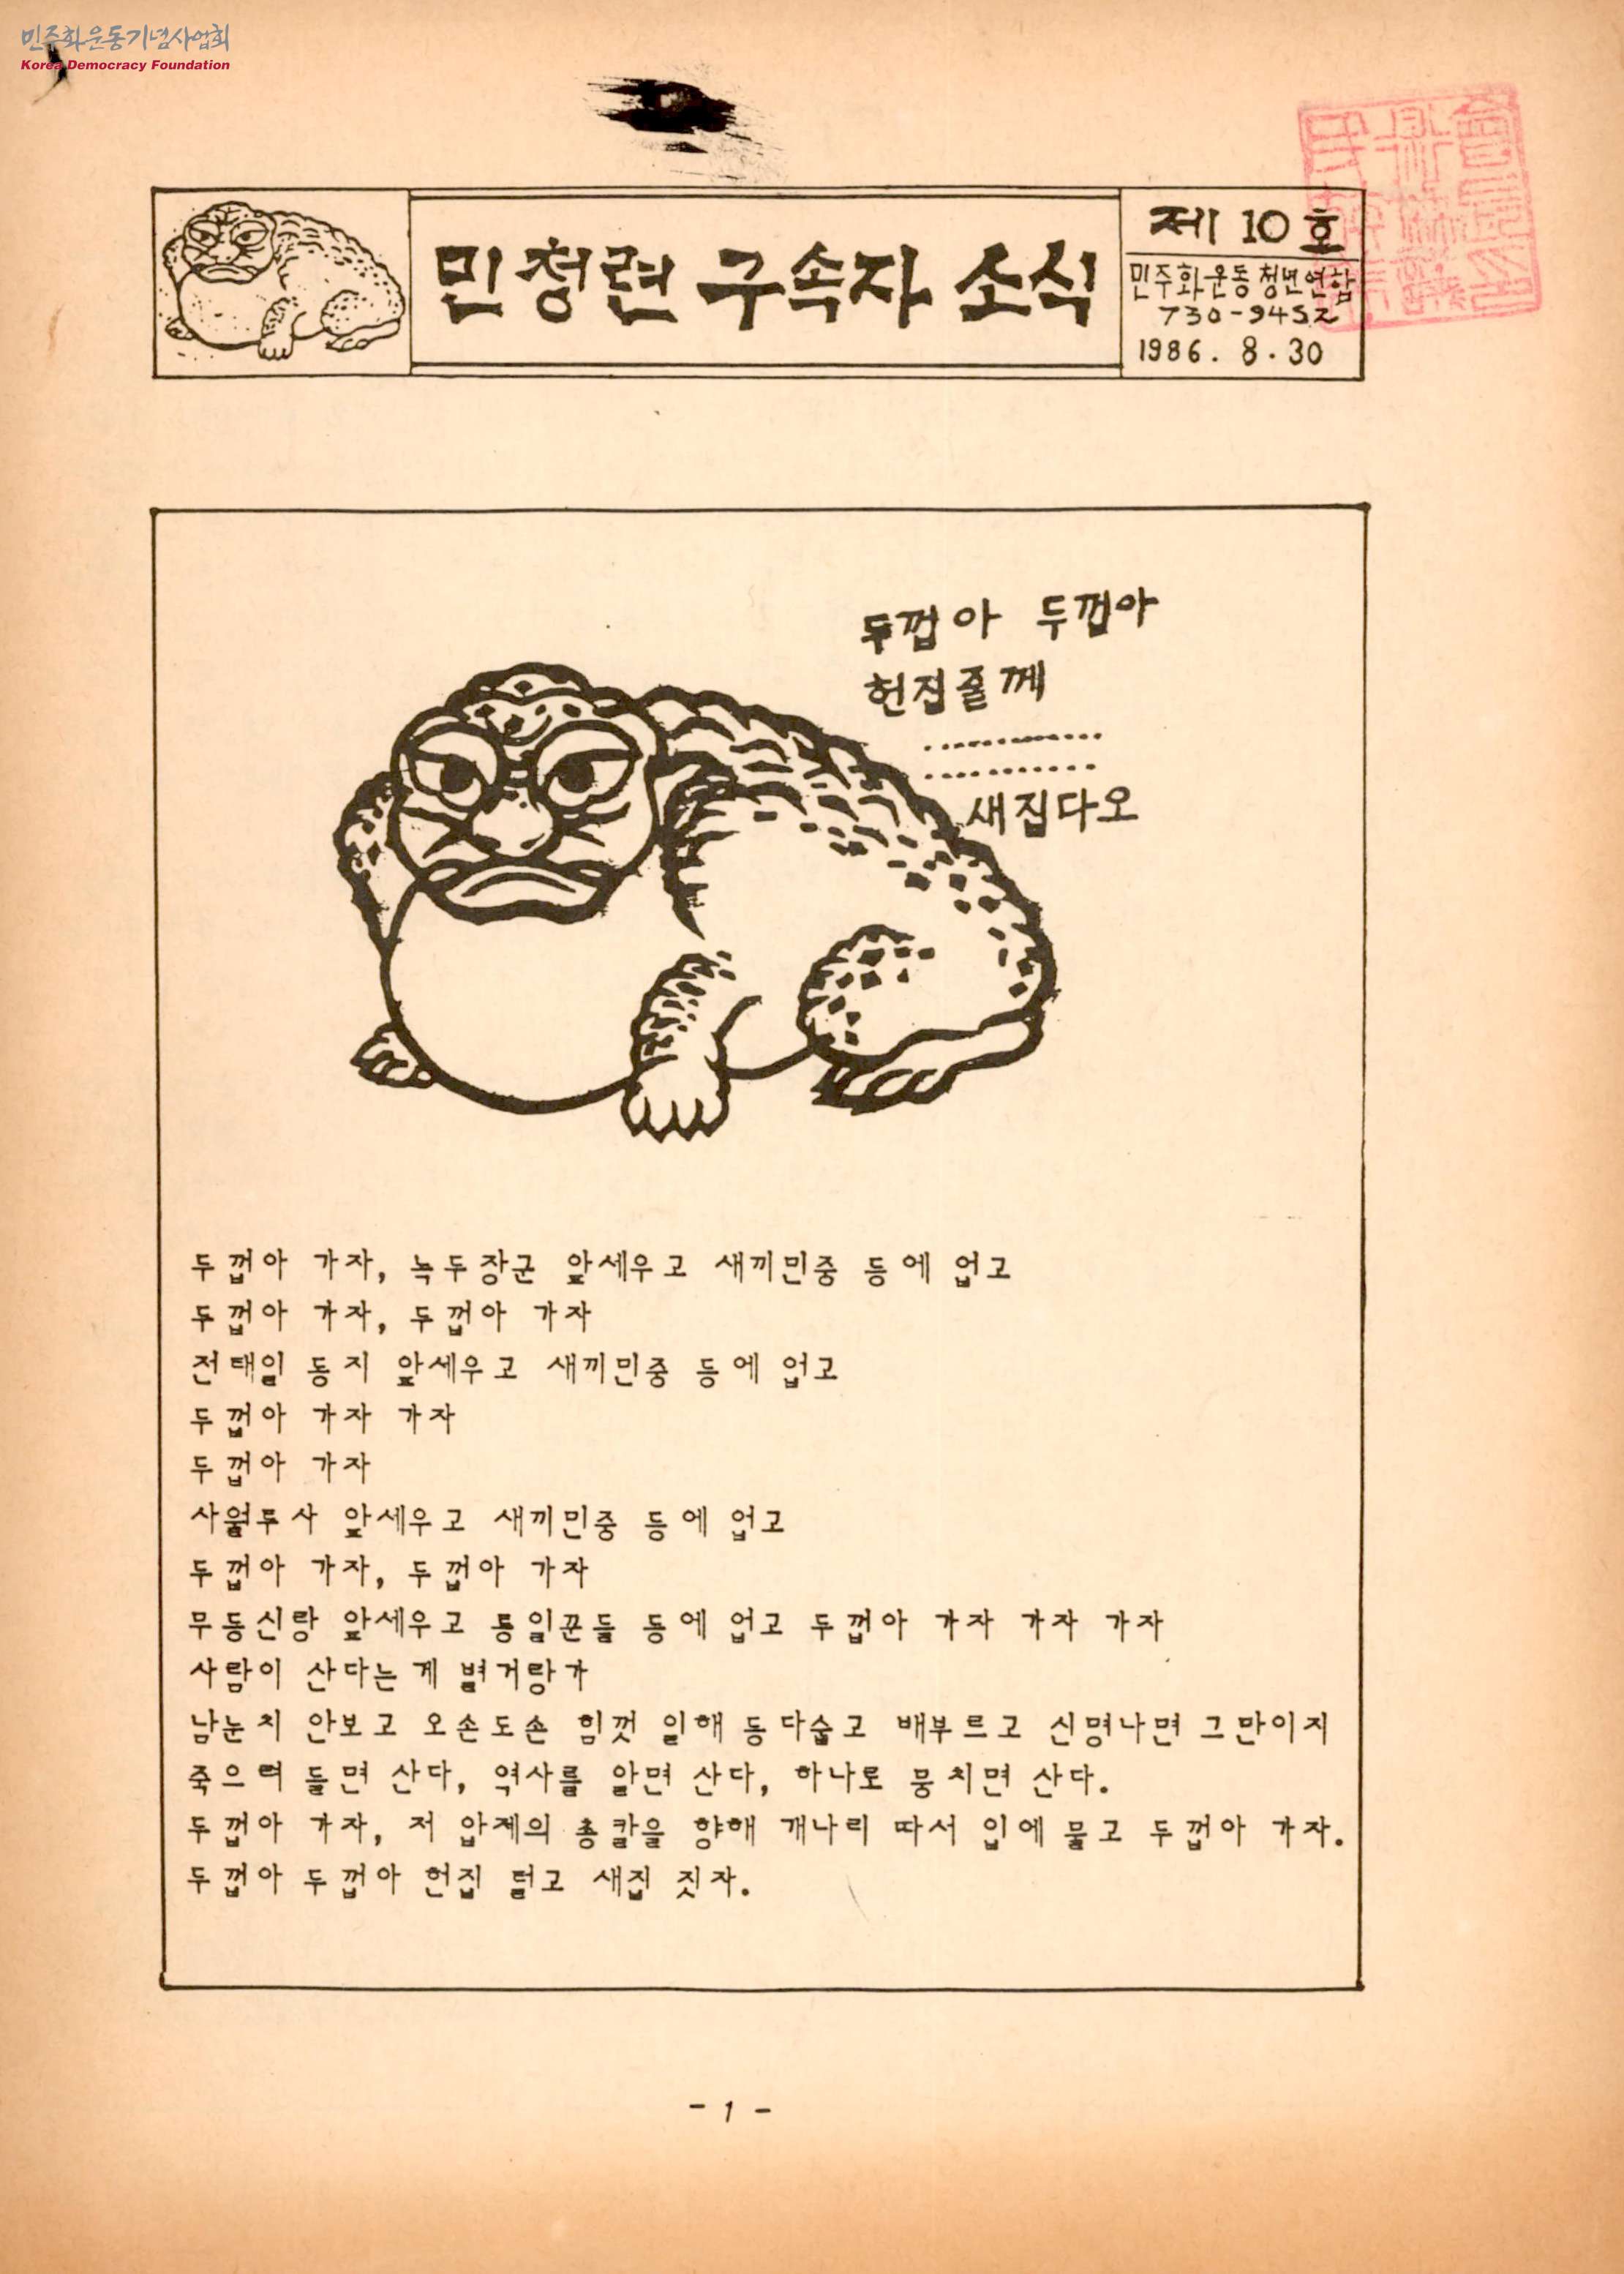 민주화운동기념사업회
Korea Democracy Foundation
민청련 구속자 소식
제 10 호
민주화운동청년연합
730-9452
1986. 8. 30
두껍아 두껍아
헌집줄께
............
...........
새집다오
두껍아 가자, 녹두장군 앞세우고 새끼민중 등에 업고
두껍아 가자, 두껍아 가자
전태일 동지 앞세우고 새끼민중 등에 업고
두껍아 가자 가자
두껍아 가자
사월투사 앞세우고 새끼민중 등에 업고
두껍아 가자, 두껍아 가자
무등신랑 앞세우고 통일꾼들 등에 업고 두껍아 가자 가자 가자
사람이 산다는게 별거랑가
남눈치 안보고 오손도손 힘껏 일해 등다숩고 배부르고 신명나면 그만이지
죽으려 들면 산다, 역사를 알면 산다, 하나로 뭉치면 산다.
두껍아 가자, 저 압제의 총칼을 향해 개나리 따서 입에 물고 두껍아 가자.
두껍아 두껍아 헌집 털고 새집 짓자.
- 1 -